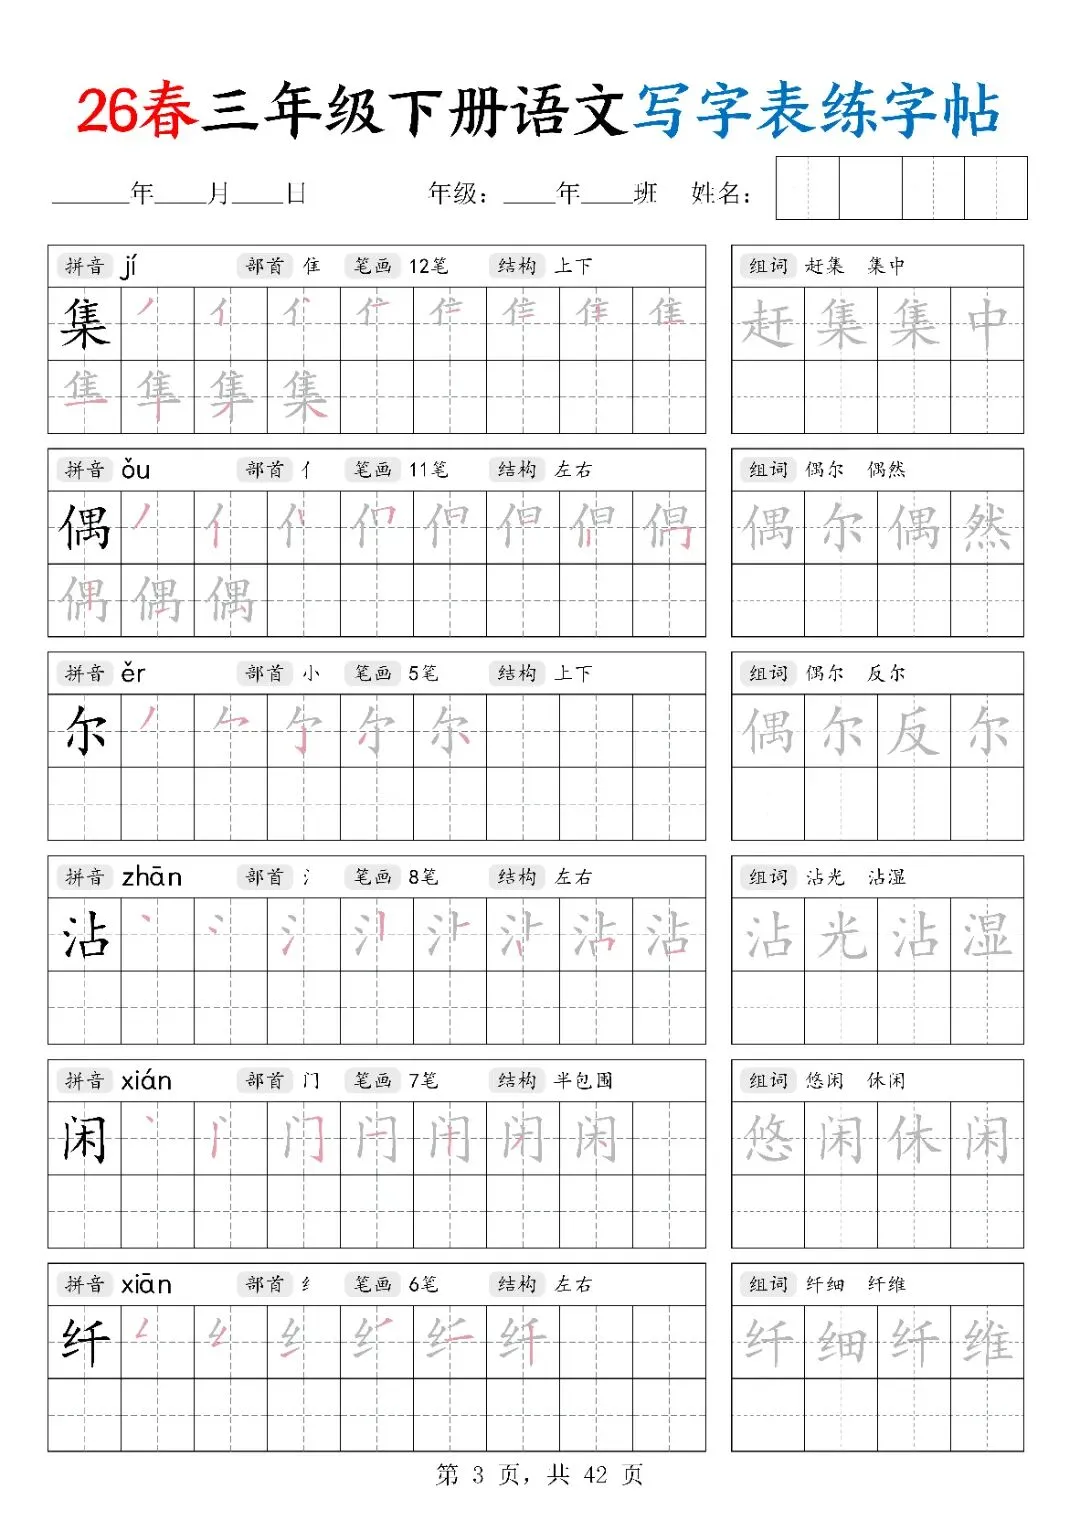 26春三年级下册语文写字表练字帖
______年____月____日 年级：____年____班 姓名：
拼音 jí 部首 隹 笔画 12笔 结构 上下 组词 赶集 集中
集 丿 亻 赶 集 集 中
隹 集
拼音 ǒu 部首 亻 笔画 11笔 结构 左右 组词 偶尔 偶然
偶 丿 亻 偶 尔 偶 然
偶 偶 偶
拼音 ěr 部首 小 笔画 5笔 结构 上下 组词 偶尔 反尔
尔 丿 尔 偶 尔 反 尔
拼音 zhān 部首 氵 笔画 8笔 结构 左右 组词 沾光 沾湿
沾 丶 氵 沾 沾 光 沾 湿
拼音 xián 部首 门 笔画 7笔 结构 半包围 组词 悠闲 休闲
闲 丶 门 闲 悠 闲 休 闲
拼音 xiān 部首 纟 笔画 6笔 结构 左右 组词 纤细 纤维
纤 纟 纤 纤 细 纤 维
第 3 页，共 42 页